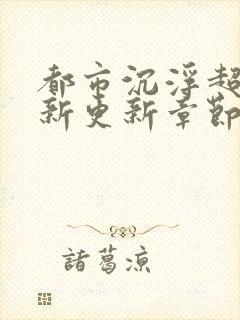 都市沉浮超
新更新章節
諸葛涼